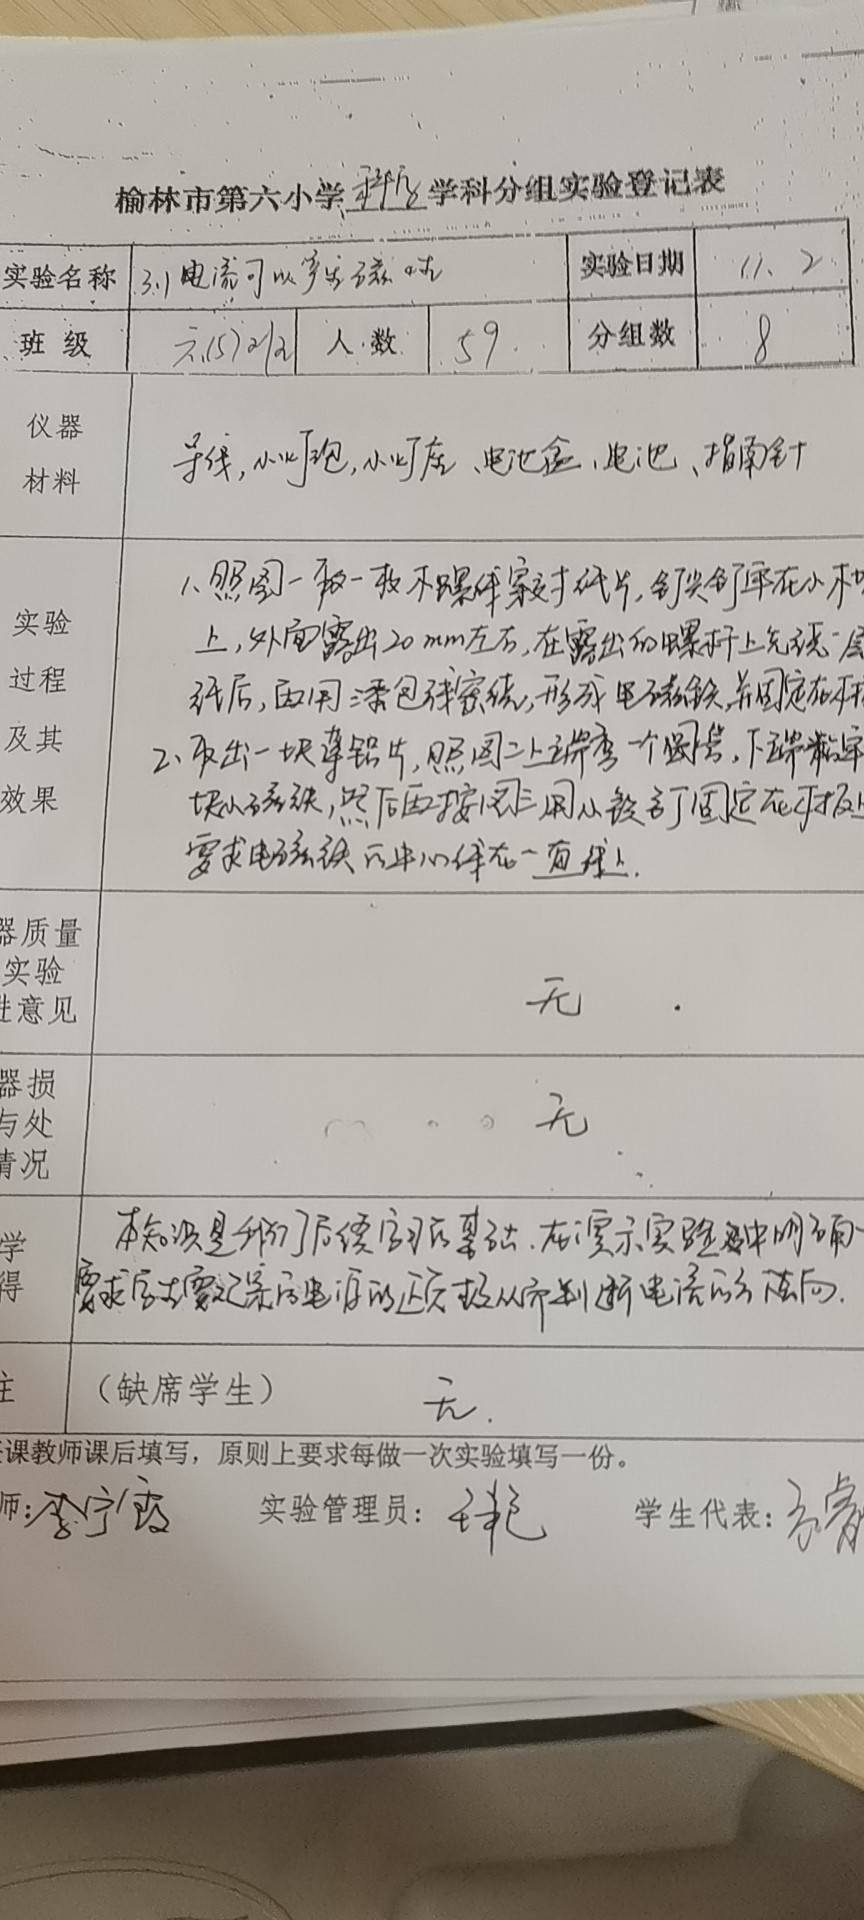 榆林市第六小学科学学科分组实验登记表
实验名称 3.1 电流可以产生磁性 实验日期 11.2
班级 六(5) 人数 59 分组数 8
仪器
材料
导线,小灯泡,小灯座、电池盒、电池、指南针
实验
过程
及其
效果
1、照图一取一枚木螺 纸片,
上,外面露出20mm左右,在露出的螺杆上先绕一层
纸后,再用漆包线密绕,形成电磁铁,并固定在木
2、取出一块薄铝片,照图二上端弯一个圆筒,下端粘牢
块小磁铁,然后再按图三用小铁钉固定在木板上
要求电磁铁的中心线在一直线上.
器质量
实验
进意见
无
器损
与处
情况
无
学
得
本知识是我们了后续学习的基础.在演示实验中明确
要求学生要记录的电源的正负极从而判断电流的方向.
注 (缺席学生) 无.
课教师课后填写,原则上要求每做一次实验填写一份。
师:李宁霞 实验管理员: 学生代表: